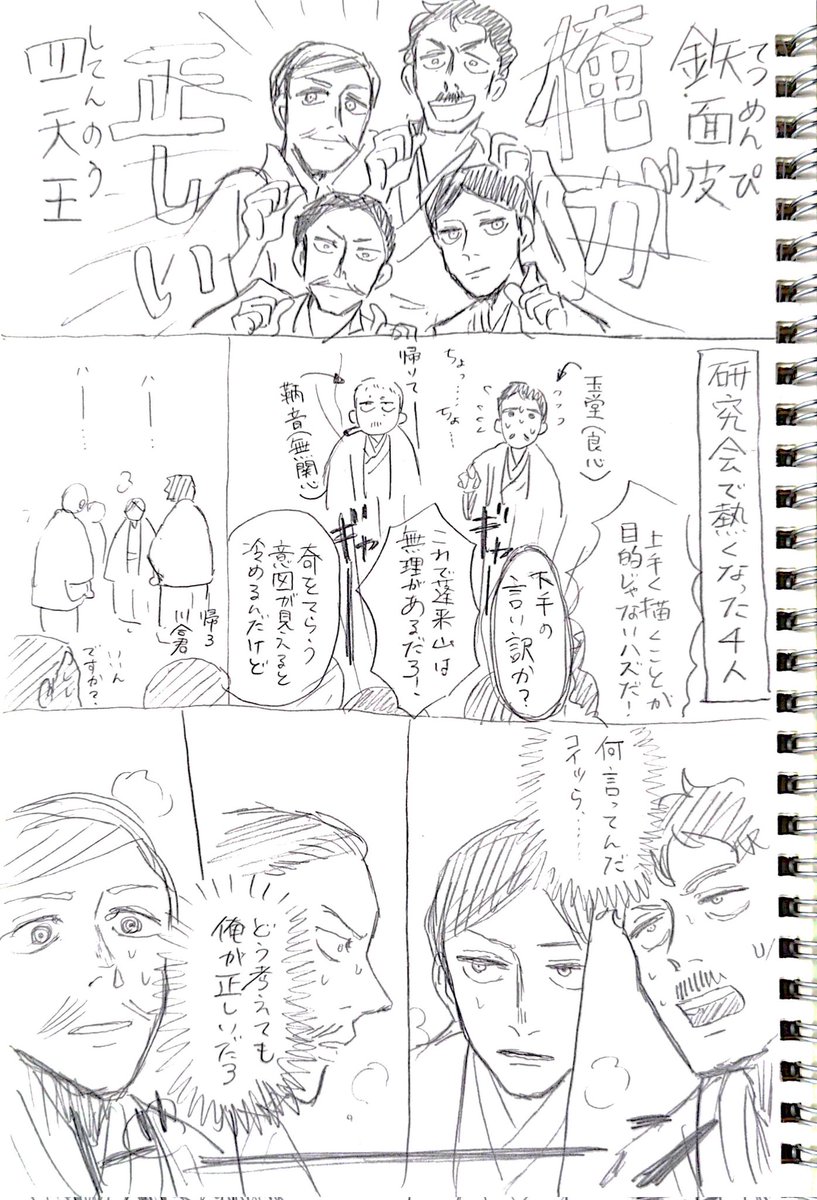 鉄面皮
てつめんぴ
俺が
正しい
四天王
してんのう
研究会で熱くなった4人
上手く描くことが
目的じゃないハズだ!
玉堂(良心)
下手の
言い訳か?
ちょっ……
ちょ…
ギャ
これで蓬来山は
無理があるだろ!
帰りてー
鞆音(無関心)
ギャ
奇をてらう
意図が見えると
冷めるんだけど
帰ろ
川合君
いいん
ですか?
何言ってんだ
コイツら……
どう考えても
俺が正しいだろ